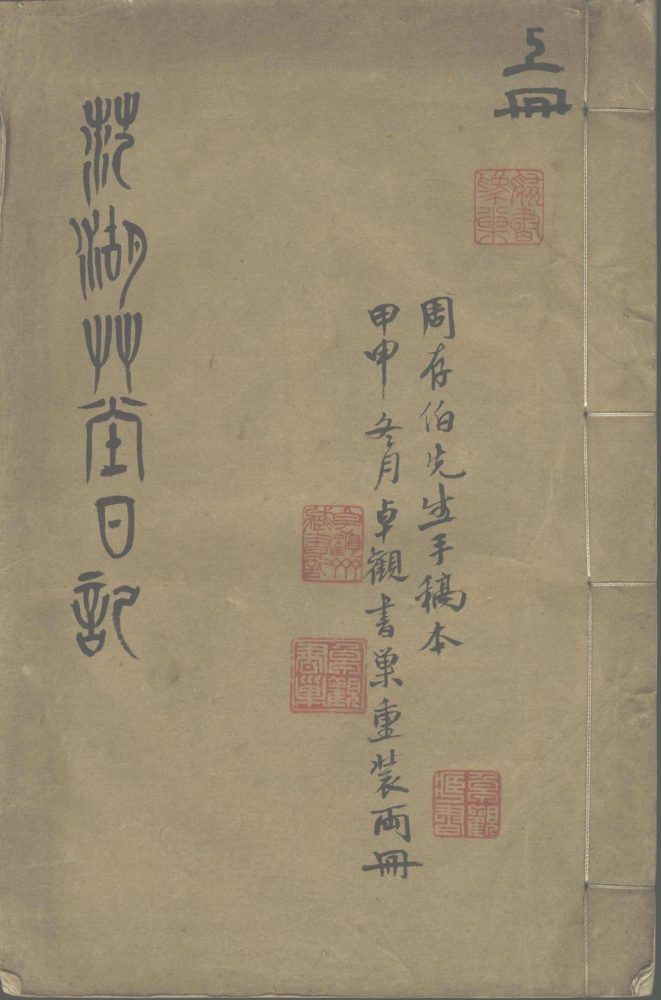 上冊
周存伯先生手稿本
甲申冬月卓觀書巢重裝兩冊
卓觀
藏書
卓觀
書巢
范湖艸堂日記